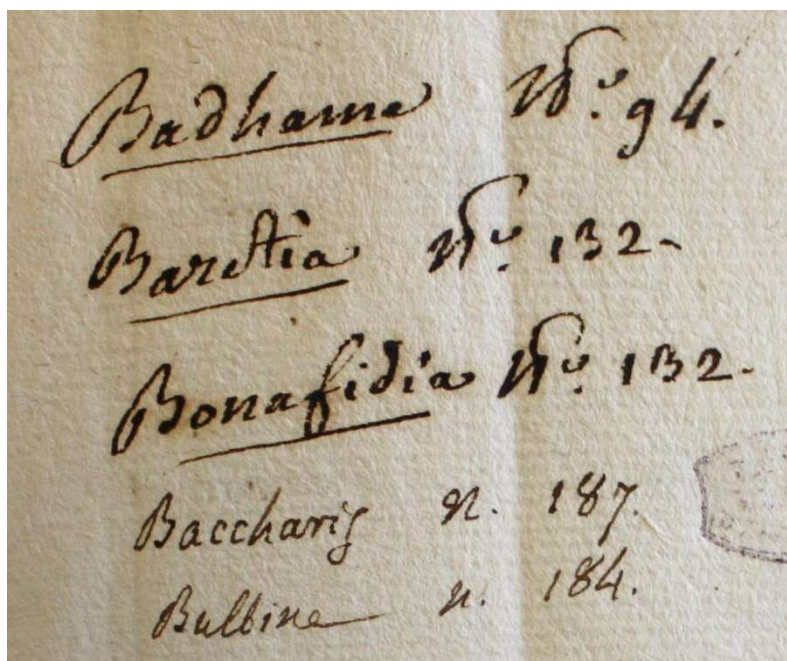 Badhame No. 94.
Baretia No. 132.
Bonafidia No. 132.
Baccharis n. 187.
Bulbine n. 184.